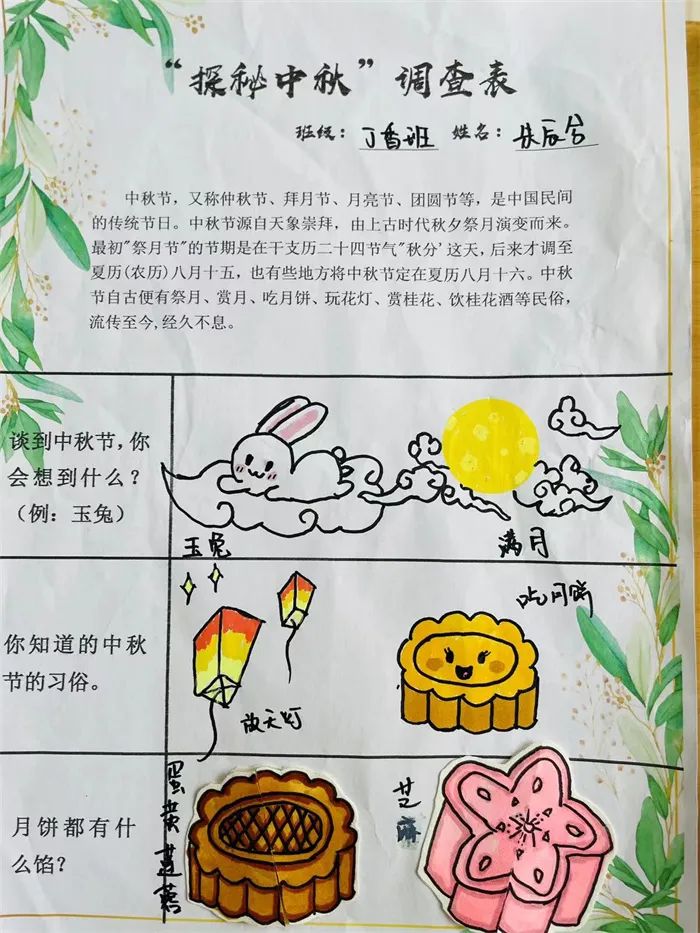 “探秘中秋”调查表
班级：丁香班 姓名：朱辰兮
中秋节，又称仲秋节、拜月节、月亮节、团圆节等，是中国民间
的传统节日。中秋节源自天象崇拜，由上古时代秋夕祭月演变而来。
最初"祭月节"的节期是在干支历二十四节气"秋分'这天，后来才调至
夏历(农历)八月十五，也有些地方将中秋节定在夏历八月十六。中秋
节自古便有祭月、赏月、吃月饼、玩花灯、赏桂花、饮桂花酒等民俗，
流传至今,经久不息。
谈到中秋节，你
会想到什么？
（例：玉兔）
玉兔
满月
你知道的中秋
节的习俗。
放天灯
吃月饼
月饼都有什
么馅？
蛋黄莲蓉
芝麻